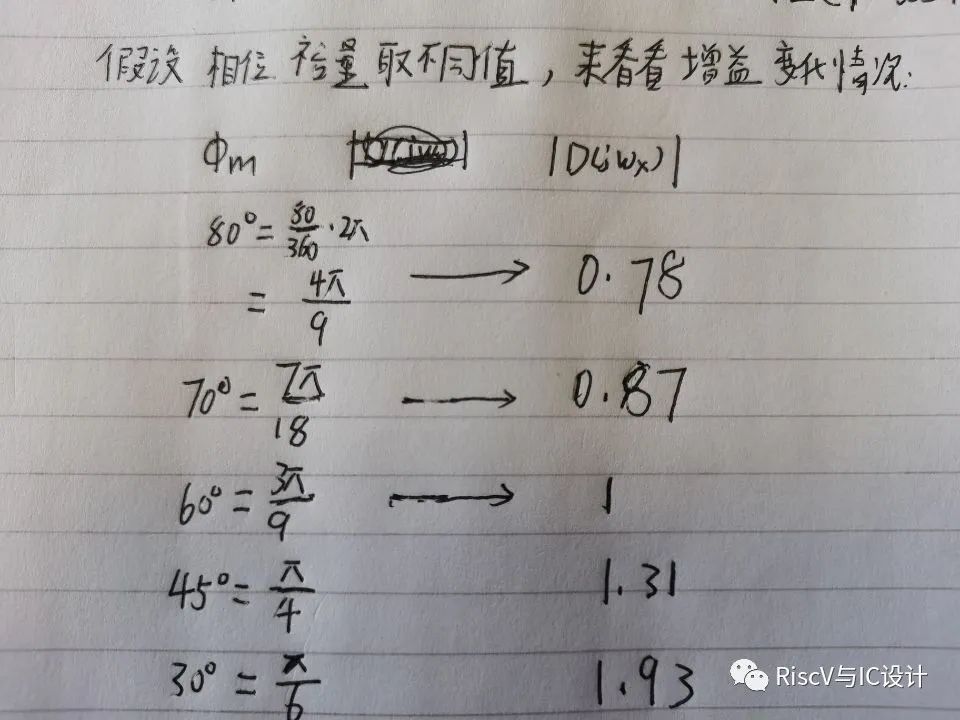 假设 相位裕量取不同值，来看看增益变化情况:
Φm |D(jωx)|
80°= 80/360 · 2π
= 4π/9 → 0.78
70°= 7π/18 → 0.87
60°= 3π/9 → 1
45°= π/4 1.31
30° = π/6 1.93
RiscV与IC设计